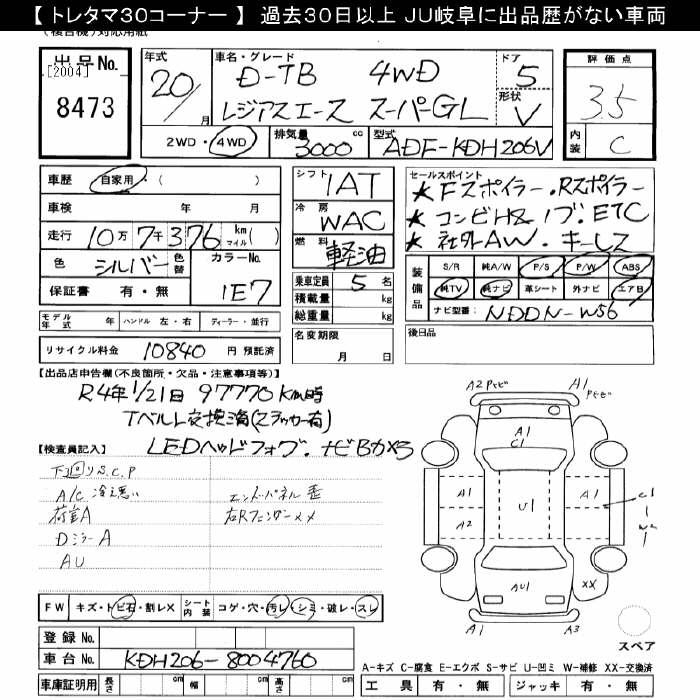 【 トレタマ30コーナー 】 過去30日以上 JU岐阜に出品歴がない車両
対応用紙
出品No.
[2004]
8473
年式 20/月
車名・グレード D-TB 4WD
レジアスエース スーパーGL
ドア 5
形状 V
評価点
3.5
内装 C
2WD・4WD
排気量 3000 cc
型式 ADF-KDH206V
車歴 自家用・( )
車検 年 月
走行 10万7千376 km マイル( )
色 シルバー 色替
カラーNo. 1E7
保証書 有・無
シフト IAT
冷房 WAC
燃料 軽油
乗車定員 5 名
積載量 kg
総重量 kg
セールスポイント
★Fスポイラー・Rスポイラー
★コンビH&ノブ・ETC
★社外AW・キーレス
装備品
S/R 純A/W P/S P/W ABS
純TV 純ナビ 革シート 外ナビ エアB
ナビ型番 NDDN-W56
モデル年式 年 ハンドル 左・右 ディーラー・並行
リサイクル料金 10840 円 預託済
名変期限 月 日
後日品
【出品店申告欄(不良箇所・欠品・注意事項等)】
R4年1/21日 97770Km時
Tベルト交換済(ステッカー有)
LEDヘッドフォグ・ナビBカメラ
【検査員記入】
下回りS.C.P
A/C 冷え悪い
荷室A
Dミラー A
AU
エンドパネル歪
右Rフェンダー××
A2
A1
A1
C1
A1
A2
U1
A1
C1
W2
AU1
XX
A1
A3
スペア
FW キズ・トビ石・割レX シート内装 コゲ・穴・汚レ・シミ・破レ・スレ
登録No.
車台No. KDH206-8004760
車庫証明用 長さ cm 幅 cm 高さ cm
A-キズ C-腐食 E-エクボ S-サビ U-凹ミ W-補修 XX-交換済
工具 有・無 ジャッキ 有・無